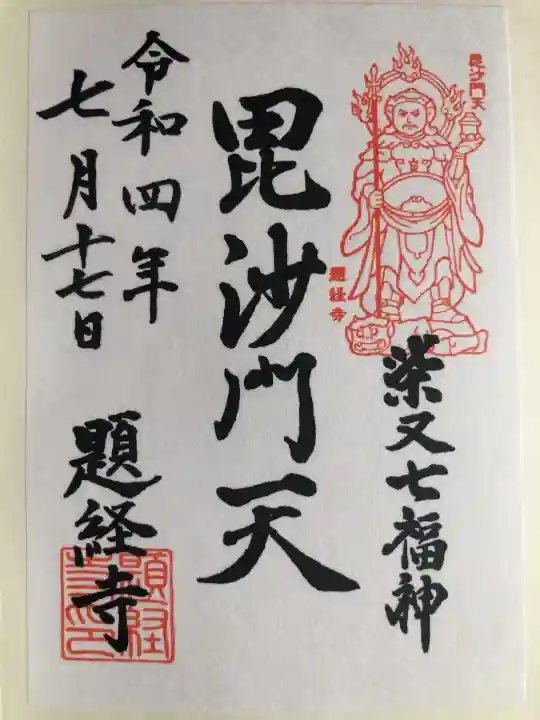 毘沙門天
題経寺
柴又七福神
毘沙門天
令和四年
七月十七日
題経寺